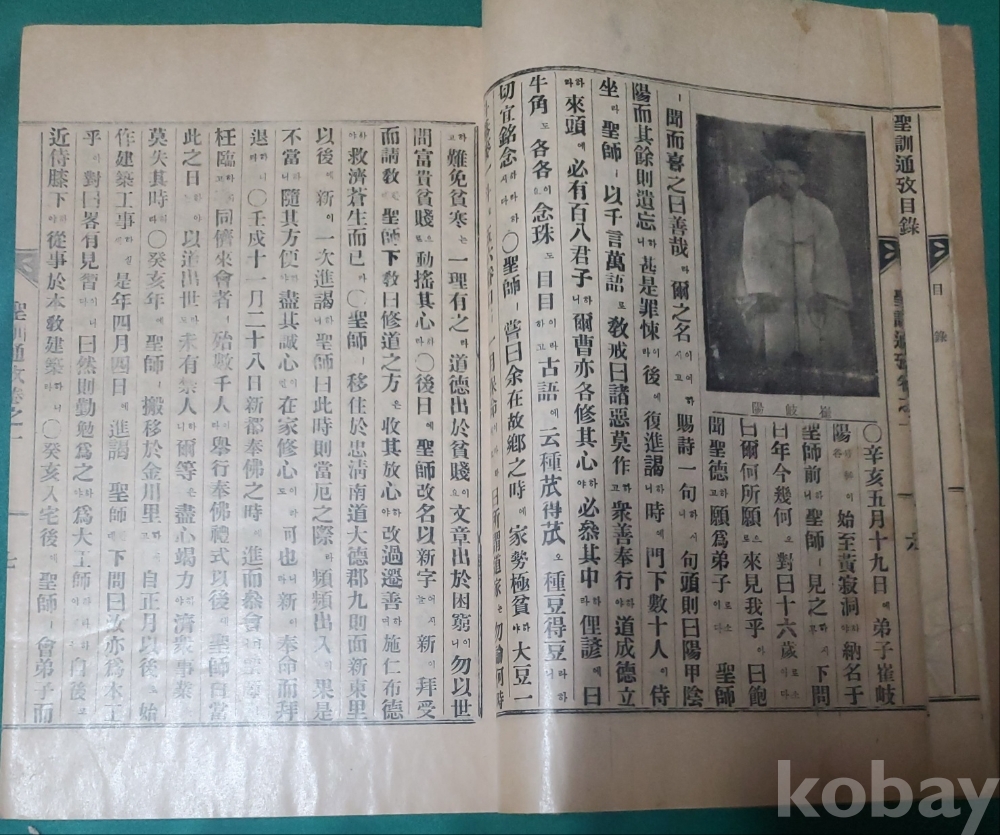 聖訓通攷目錄
目錄
崔岐陽
〇辛亥五月十九日에弟子崔岐
陽이始至黃寂洞하야納名于
聖師前하니聖師ㅣ見之하시고下問
曰年今幾何오對曰十六歲이로소이다
曰爾何所願으로來見我乎아曰飽
聞聖德하고願爲弟子이로소이다聖師
ㅣ聞而喜之曰善哉라爾之名이여하시고賜詩一句하시니句頭則曰陽甲陰
陽而其餘則遺忘하니甚是罪悚이라後에復進謁하니時에門下數十人이侍
坐라聖師ㅣ以千言萬語로敎戒曰諸惡莫作하고衆善奉行하야道成德立
하라來頭에必有百八君子하리니爾曹亦各修其心하야必叅其中하라俚諺에曰
牛角도各各이오念珠도目目이라하고古語에云種苽得苽오種豆得豆라하니
切宜銘念하라하시다〇聖師ㅣ嘗曰余在故鄕之時에家勢極貧하야大豆一
月
何時
難免貧寒은一理有之라道德出於貧賤이오文章出於困窮이니勿以世
間富貴貧賤으로動搖其心하라〇後日에聖師改名以新字어늘新이拜受
而請敎한대聖師下敎曰修道之方은收其放心하야改過遷善하며施仁布德
하야救濟蒼生而已라〇聖師ㅣ移住於忠淸南道大德郡九則面新東里
以後에新이一次進謁하니聖師曰此時則當厄之際라頻頻出入이果是
不當하니隨其方便하야盡其誠心이면在家修心도可也라新이奉命而拜
退하니라〇壬戌十一月二十八日新都奉佛之時에進而叅會
枉臨하고同儕來會者ㅣ殆數千人이라擧行奉佛禮式以後에聖師曰當
此之日하야以道出世로未有祭人하니爾等은盡心竭力하야濟衆事業
莫失其時하라〇癸亥年에聖師ㅣ搬移於金用里하고自正月以後로始
作建築工事하실새是年四月四日에進謁한대聖師ㅣ下問曰汝亦爲木工
乎아對曰畧有見習이니이다曰然則勤勉爲之하야爲大工師하라自後로
近侍膝下하야從事於本敎建築하니라〇癸亥入宅後에聖師ㅣ會弟子而
聖訓通攷卷之一
kobay